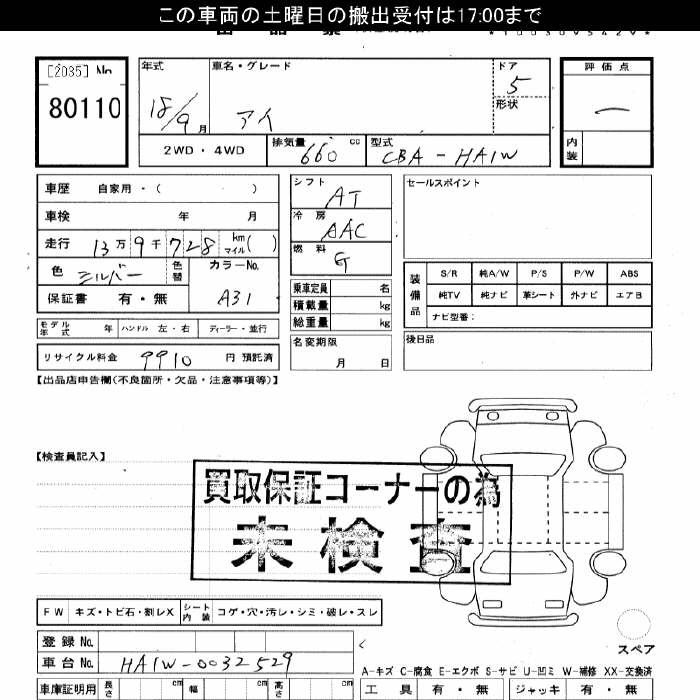 この車両の土曜日の搬出受付は17:00まで
[2035] No
80110
年式 車名・グレード ドア 評価点
18/9月 アイ 5 —
形状
2WD・4WD 排気量 660 cc 型式 CBA-HA1W 内装
車歴 自家用・( )
車検 年 月
走行 13万9千728 km マイル( )
色 シルバー 色替 カラーNo.
保証書 有・無 A31
シフト AT
冷房 AAC
燃料 G
乗車定員 名
積載量 kg
総重量 kg
セールスポイント
装備品 S/R 純A/W P/S P/W ABS
純TV 純ナビ 革シート 外ナビ エアB
ナビ型番:
モデル年式 年 ハンドル 左・右 ディーラー・並行
名変期限 月 日
後日品
リサイクル料金 9910 円 預託済
【出品店申告欄(不良箇所・欠品・注意事項等)】
【検査員記入】
買取保証コーナーの為
未検査
FW キズ・トビ石・割レX シート内装 コゲ・穴・汚レ・シミ・破レ・スレ
登録No.
車台No. HA1W-0032529
スペア
A-キズ C-腐食 E-エクボ S-サビ U-凹ミ W-補修 XX-交換済
車庫証明用 長さ cm 幅 cm 高さ cm 工具 有・無 ジャッキ 有・無